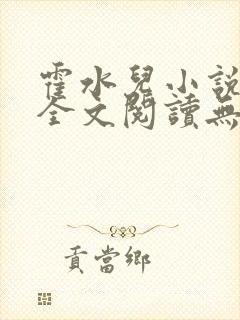 霍水兒小說
全文閱讀無
貢當鄉